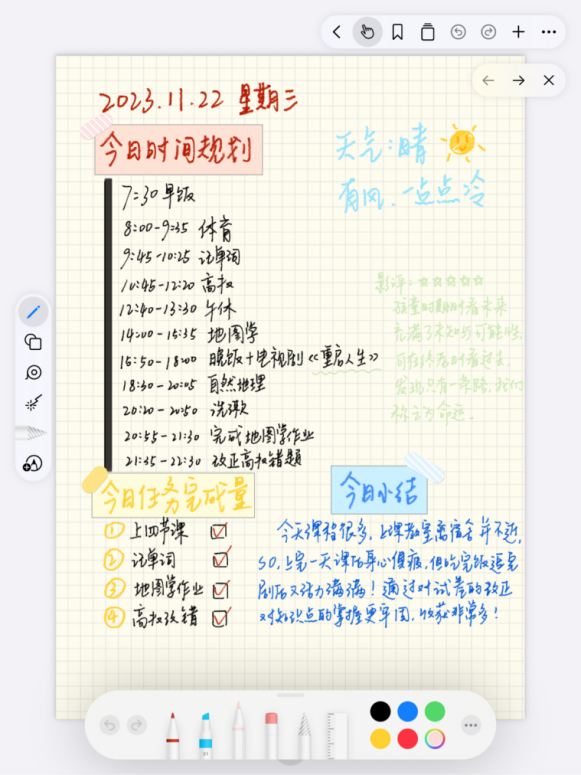 2023.11.22 星期三
今日时间规划
天气:晴
有风,一点点冷
7:30 早饭
8:00-9:35 体育
9:45-10:25 记单词
10:45-12:20 高数
12:40-13:30 午休
14:00-15:35 地图学
15:50-18:00 晚饭+电视剧《重启人生》
18:30-20:05 自然地理
20:20-20:50 洗漱
20:55-21:30 完成地图学作业
21:35-22:30 改正高数错题
影评:☆☆☆☆☆
孩童时期盼着未来
充满了未知与可能性,
可在终老时看过去,
发现只有一条路,我们
称之为命运。
今日任务完成量
① 上四节课
② 记单词
③ 地图学作业
④ 高数改错
今日小结
今天课程很多,上课教室离宿舍并不近,
so,上完一天课后身心俱疲,但吃完饭追完
剧后又活力满满!通过对试卷的改正
对知识点的掌握更牢固,收获非常多!